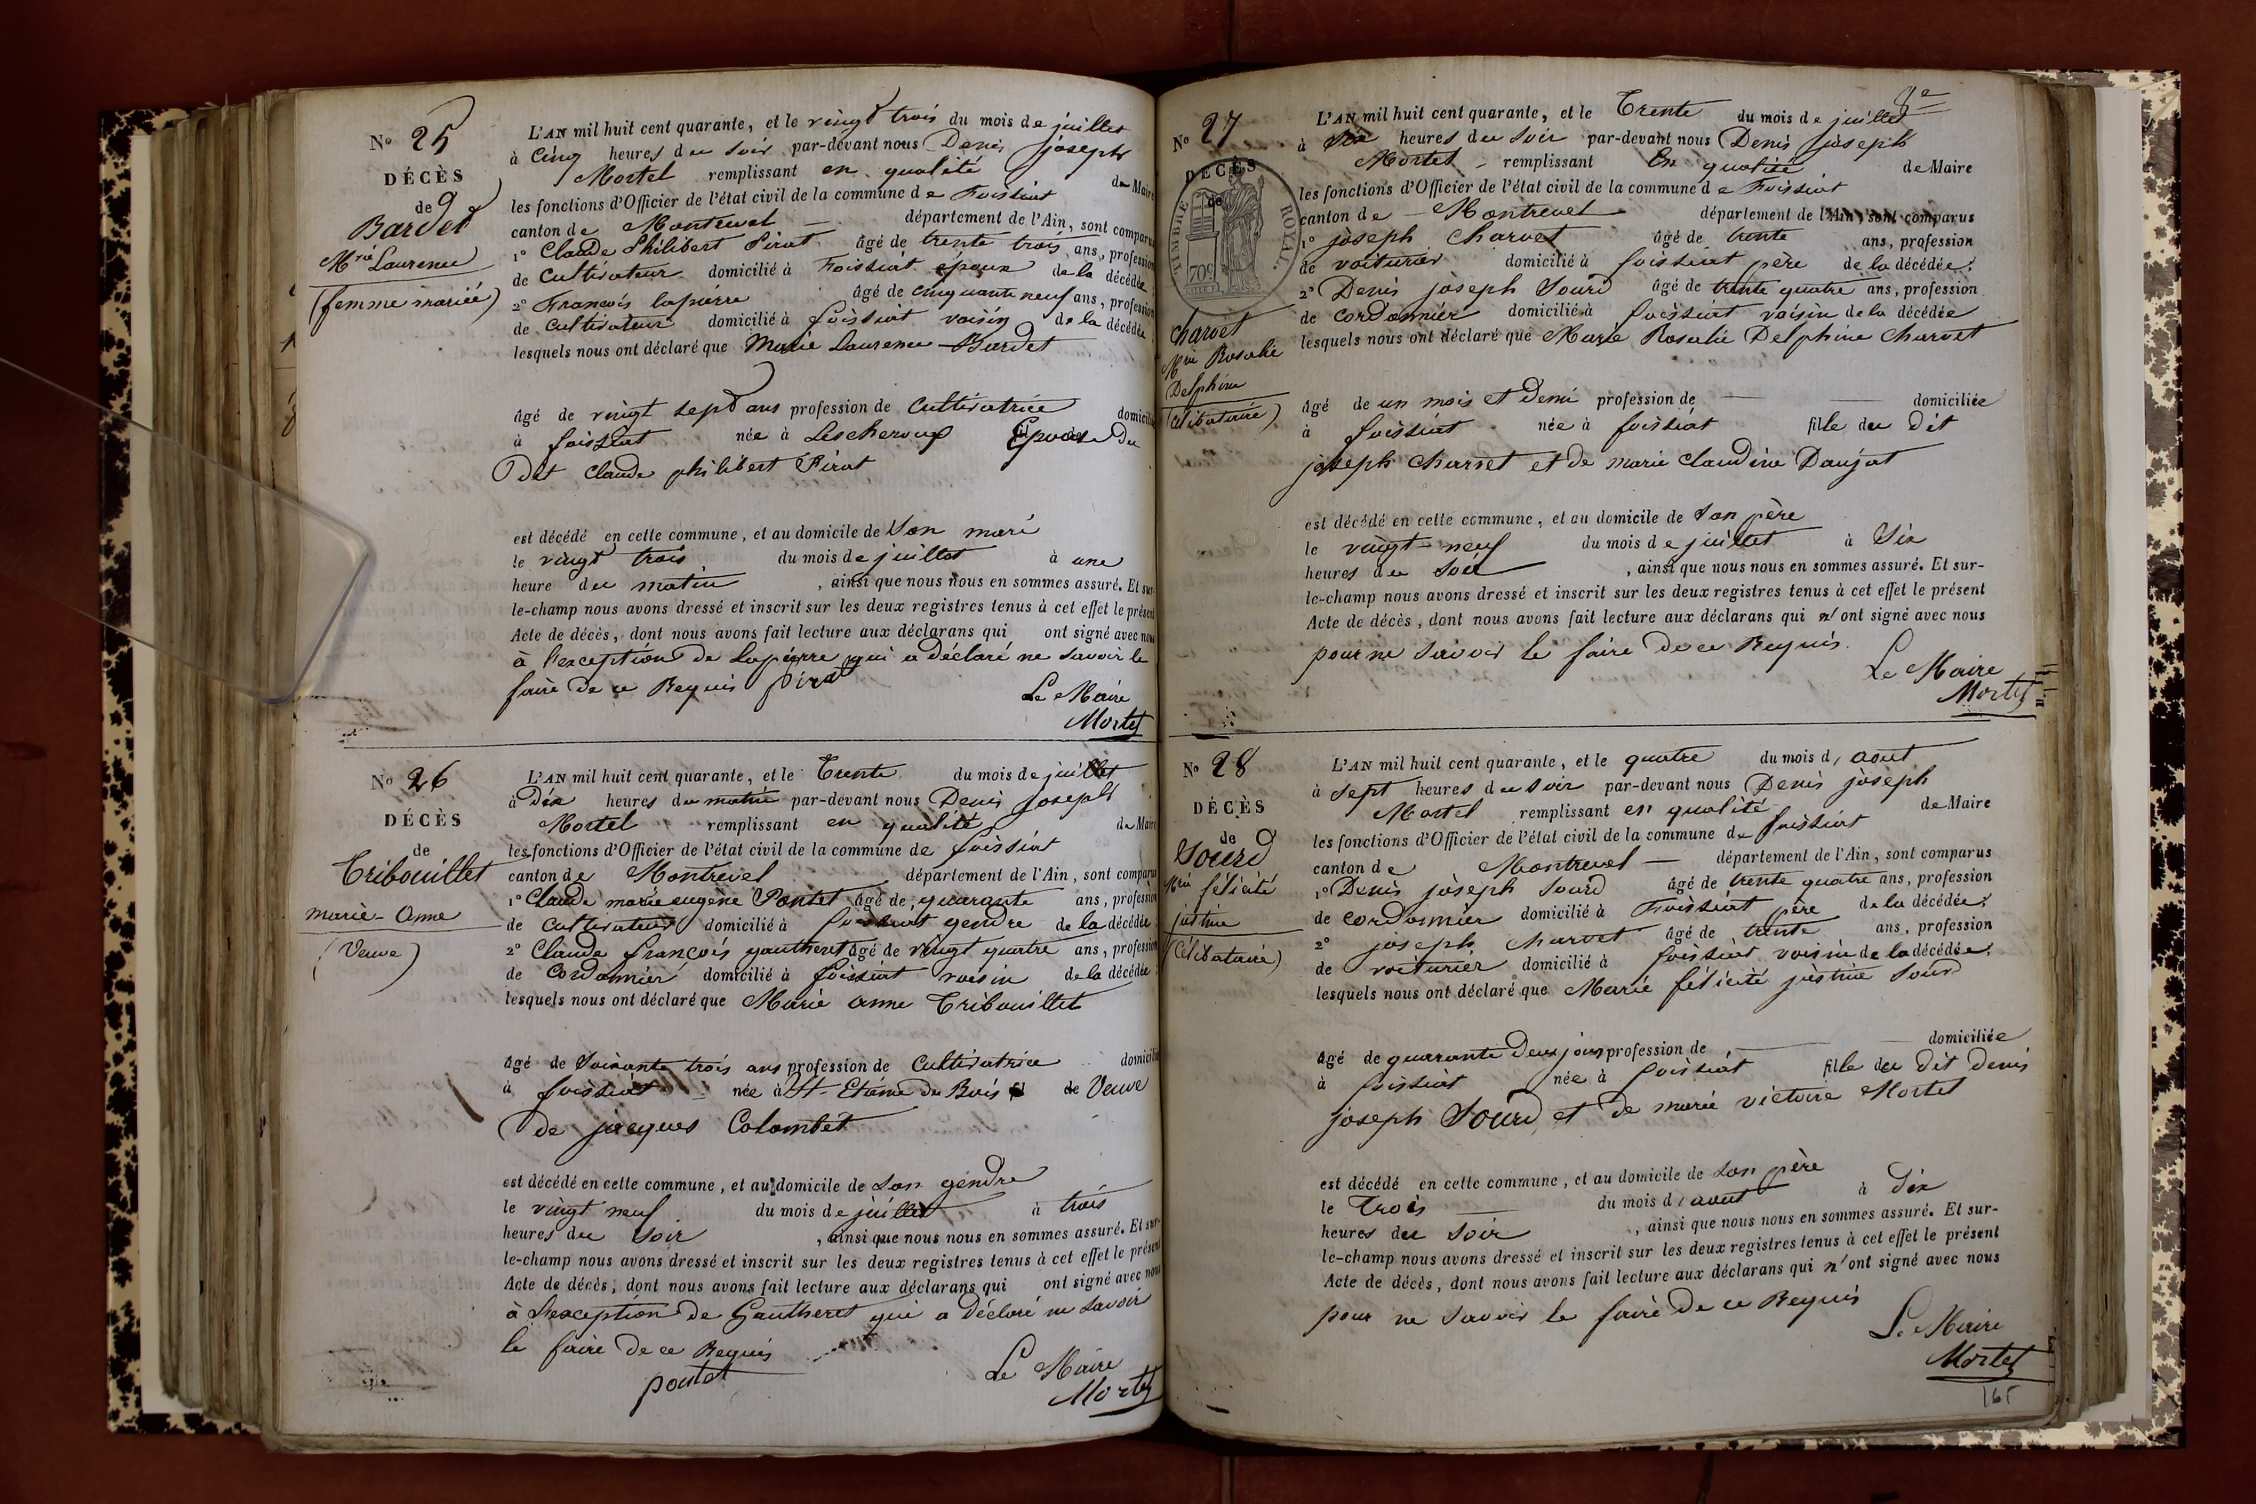 N° 25
DÉCÈS
de
Bardet
Mie Laurence
(femme mariée)
L'AN mil huit cent quarante, et le vingt trois du mois de juillet
à cinq heures du soir par-devant nous Denis joseph
Mortel remplissant en qualité de Maire
les fonctions d'Officier de l'état civil de la commune de Foissiat
canton de Montrevel département de l'Ain, sont comparus
1° Claude Philibert Pirat âgé de trente trois ans, profession
de cultivateur domicilié à Foissiat époux de la décédée
2° François lapierre âgé de cinquante neuf ans, profession
de cultivateur domicilié à foissiat voisin de la décédée
lesquels nous ont déclaré que Marie Laurence Bardet
âgé de vingt sept ans profession de cultivatrice domicilié
à foissiat née à Lescheroux Epouse du
Dit Claude philibert Pirat
est décédé en cette commune, et au domicile de Son mari
le vingt trois du mois de juillet à une
heure du matin, ainsi que nous nous en sommes assuré. Et sur-
le-champ nous avons dressé et inscrit sur les deux registres tenus à cet effet le présent
Acte de décès, dont nous avons fait lecture aux déclarans qui ont signé avec nous
à l'exception de Lapierre qui a déclaré ne savoir le
faire de ce Requis pirat
Le Maire
Mortel
N° 26
DÉCÈS
de
Tribouillet
marie-Anne
(Veuve)
L'AN mil huit cent quarante, et le Trente du mois de juillet
à Dix heures du matin par-devant nous Denis joseph
Mortel remplissant en qualité de Maire
les fonctions d'Officier de l'état civil de la commune de foissiat
canton de Montrevel département de l'Ain, sont comparus
1° Claude marie eugène Pontet âgé de quarante ans, profession
de cultivateur domicilié à foissiat gendre de la décédée
2° Claude françois gautheret âgé de vingt quatre ans, profession
de Cordonnier domicilié à foissiat voisin de la décédée
lesquels nous ont déclaré que Marie anne Tribouillet
âgé de Soixante trois ans profession de Cultivatrice domicilié
à foissiat née à St-Etienne du Bois de Veuve
De jacques Colombet
est décédé en cette commune, et au domicile de son gendre
le vingt neuf du mois de juillet à trois
heures du Soir, ainsi que nous nous en sommes assuré. Et sur-
le-champ nous avons dressé et inscrit sur les deux registres tenus à cet effet le présent
Acte de décès, dont nous avons fait lecture aux déclarans qui ont signé avec nous
à l'exception de Gautheret qui a déclaré ne savoir
le faire de ce Requis
pontet
Le Maire
Mortel
N° 27
DÉCÈS
de
TIMBRE ROYAL
70c
Charvet
Mie Rosalie
Delphine
(célibataire)
8e
L'AN mil huit cent quarante, et le Trente du mois de juillet
à Six heures du soir par-devant nous Denis joseph
Mortel remplissant En qualité de Maire
les fonctions d'Officier de l'état civil de la commune de Foissiat
canton de Montrevel département de l'Ain, sont comparus
1° joseph Charvet âgé de trente ans, profession
de voiturier domicilié à foissiat père de la décédée;
2° Denis joseph Sourd âgé de trente quatre ans, profession
de cordonnier domicilié à foissiat voisin de la décédée
lesquels nous ont déclaré que Marie Rosalie Delphine Charvet
âgé de un mois et Demi profession de domiciliée
à foissiat née à foissiat fille du Dit
joseph Charvet et de marie Claudine Daujat
est décédé en cette commune, et au domicile de Son père
le vingt-neuf du mois de juillet à Six
heures du Soir, ainsi que nous nous en sommes assuré. Et sur-
le-champ nous avons dressé et inscrit sur les deux registres tenus à cet effet le présent
Acte de décès, dont nous avons fait lecture aux déclarans qui n'ont signé avec nous
pour ne savoir le faire de ce Requis.
Le Maire
Mortel
N° 28
DÉCÈS
de
Sourd
Mie félicité
justine
(Célibataire)
L'AN mil huit cent quarante, et le quatre du mois d'aout
à sept heures du soir par-devant nous Denis joseph
Mortel remplissant en qualité de Maire
les fonctions d'Officier de l'état civil de la commune de foissiat
canton de Montrevel département de l'Ain, sont comparus
1° Denis joseph Sourd âgé de trente quatre ans, profession
de cordonnier domicilié à Foissiat père de la décédée;
2° joseph Charvet âgé de trente ans, profession
de voiturier domicilié à foissiat voisin de la décédée;
lesquels nous ont déclaré que Marie félicité justine Sourd
âgé de quarante Deux jours profession de domiciliée
à foissiat née à foissiat fille du Dit Denis
joseph Sourd et de marie victoire Mortel
est décédé en cette commune, et au domicile de son père
le Trois du mois d'aout à Dix
heures du Soir, ainsi que nous nous en sommes assuré. Et sur-
le-champ nous avons dressé et inscrit sur les deux registres tenus à cet effet le présent
Acte de décès, dont nous avons fait lecture aux déclarans qui n'ont signé avec nous
pour ne savoir le faire de ce Requis
Le Maire
Mortel
165